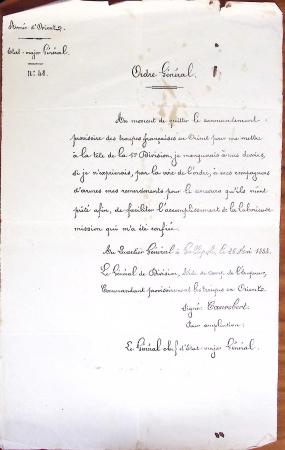 Armée d'Orient
Etat-major Général
N° 48.
Ordre Général.
Au moment de quitter le commandement
provisoire des troupes françaises en Orient pour me mettre
à la tête de la 1re Division, je manquerais à mes devoirs,
si je n'exprimais, par la voie de l'ordre, à mes compagnons
d'armes mes remerciments pour le concours qu'ils m'ont
prêté afin de faciliter l'accomplissement de la laborieuse
mission qui m'a été confiée.
Au Quartier Général à Gallipoli, le
Le Général de Division, Aide de camp de l'Empereur,
Commandant provisoirement les troupes en Orient.
Signé: Canrobert.
Pour ampliation:
Le Général chef d'Etat-major Général.